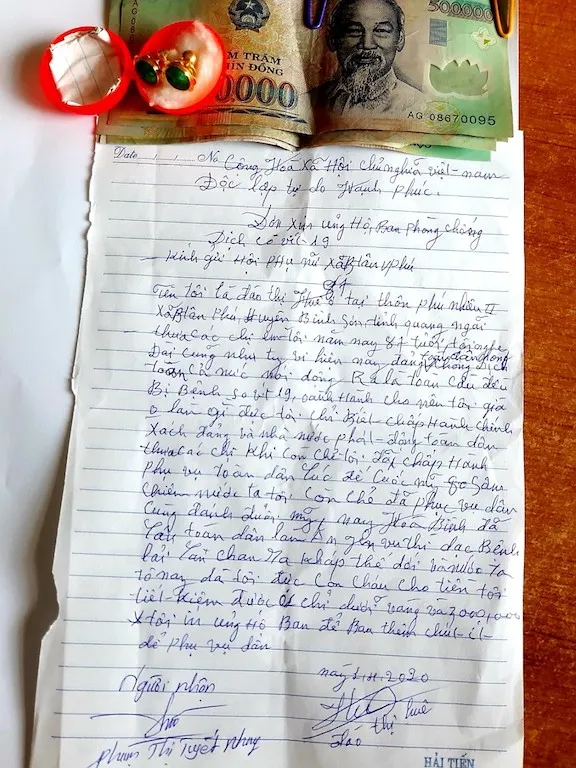 500000
AG 08
M TRĂM
HÌN ĐỒNG
0000
AG 08670095
Date No Công Hoá Xã Hội Chủ nghĩa việt-nam
Độc lập tự do Hạnh phúc.
Đơn xin ủng Hộ, Ban phòng chống
Dịch cô vít-19
- Kính gửi Hội phụ nữ xã Bình Tân phú
Tên tôi là đào thị Huê ở tại thôn phú nhiêu II
xã B Tân phú Huyện Bình Sơn tỉnh quang ngãi
- thưa các chị em tôi năm nay 84 tuổi tôi nghe
Đài cung như ty vi hiên nay đảng toàn dân phòng chống Dịch
toàn cả nức nơi dông Rả là toàn cầu đều
Bị Bệnh 19, oành Hành cho nên tôi già
o làm gì đức tôi chỉ Biết chấp Hành chính
xách đảng và nhà nước phát động toàn dân
thưa các chị Khi Con Chế tôi chấp Hành
phụ vụ toàn dân lúc đế Cuốc mỹ
chiếm nước ta tôi Con Chế đã phục vụ dân
Cung đánh đưới mỹ nay Hoà Bình đã
lâu toàn dân làm ăn yên vui thì đạc Bệnh
lai lan ra khắp thế dới và nước ta
nay đã tới đức Con cháu cho tiên tôi
tiết Kiệm được chỉ dưỡi vang và 2,000,000
tôi in ung Hộ Ban để Ban thêm chút ít
để phụ vụ dân
Người nhận
2020
Phạm Thị Tuyết Nhung
Đào thị Huê
HẢI TIẾN